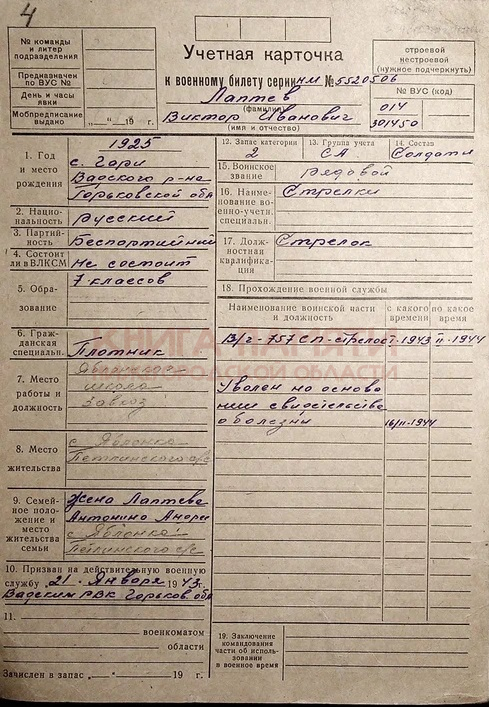 4
№ команды
и литер
подразделения
Предназначен
по ВУС №
День и часы
явки
Мобпредписание
выдано „ “ 19 г.
Учетная карточка
к военному билету серии НМ № 5520506
Лаптев
(фамилия)
Виктор Иванович
(имя и отчество)
строевой
нестроевой
(нужное подчеркнуть)
№ ВУС (код)
014
301450
1. Год
и место
рождения
1925
с. Гари
Вадского р-на
Горьковской обл
2. Нацио-
нальность
русский
3. Партий-
ность
Беспортийный
4. Состоит
ли в ВЛКСМ
Не состоит
5. Обра-
зование
7 классов
6. Граж-
данская
специальн.
Плотник
7. Место
работы и
должность
Яблонская
школа
завхоз
8. Место
жительства
с Яблонка
Петлинского с/с
9. Семей-
ное поло-
жение и
место
жительства
семьи
Жена Лаптева
Антонина Андре
с Яблонка
Петлинского с/с
10. Призван на действительную военную
службу „21“ Января 1943 г.
Вадским РВК Горьков. обл
11.
военкоматом
области
Зачислен в запас „ “ 19 г.
12. Запас категории
2
13. Группа учета
СА
14. Состав
Солдати
15. Воинское
звание
рядовой
16. Наиме-
нование во-
енно-учетн.
специальн.
Стрелки
17. Долж-
ностная
квалифика-
ция
Стрелок
18. Прохождение военной службы
Наименование воинской части
и должность
с какого
времени
по какое
время
В/ч-757 СП-стрелок
I-1943
II-1944
Уволен на основа
нии свидетельства
о болезны
16/II-1944
19. Заключение
командования
части об исполь-
зовании
в военное время
КНИГА ПАМЯТИ
ОБЛАСТИ